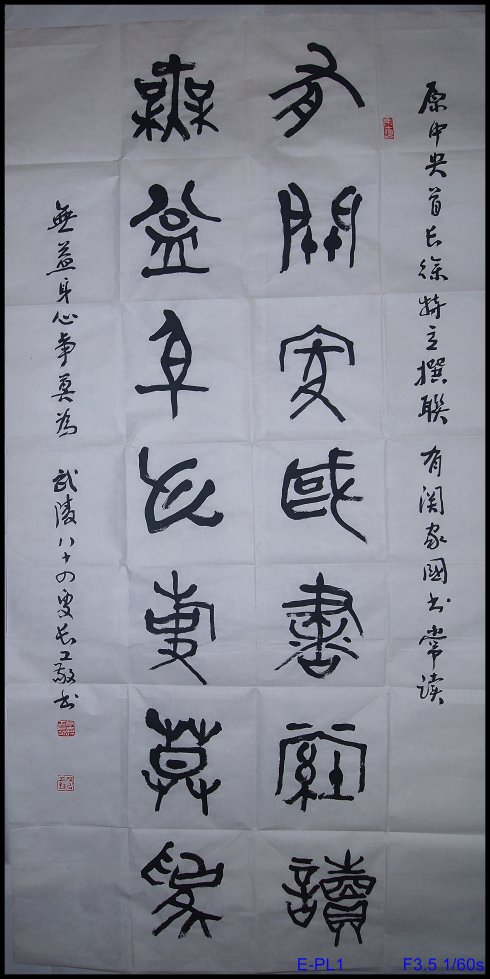 原中央首长徐特立撰联 有关家國书常读
有關家國書常讀
無益身心事莫為
無益身心事莫為 武陵八十四叟长工敬书
E-PL1 F3.5 1/60s